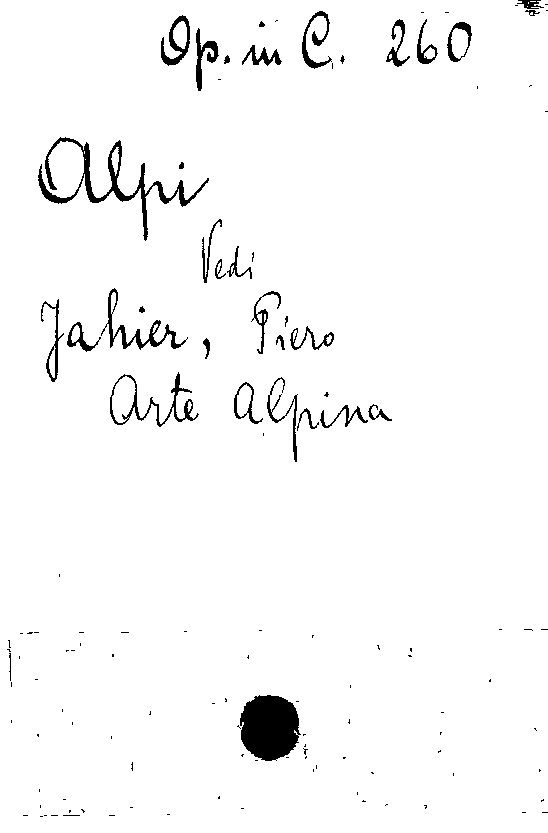 Op. in C. 260
Alpi
Vedi
Jahier, Piero
Arte Alpina